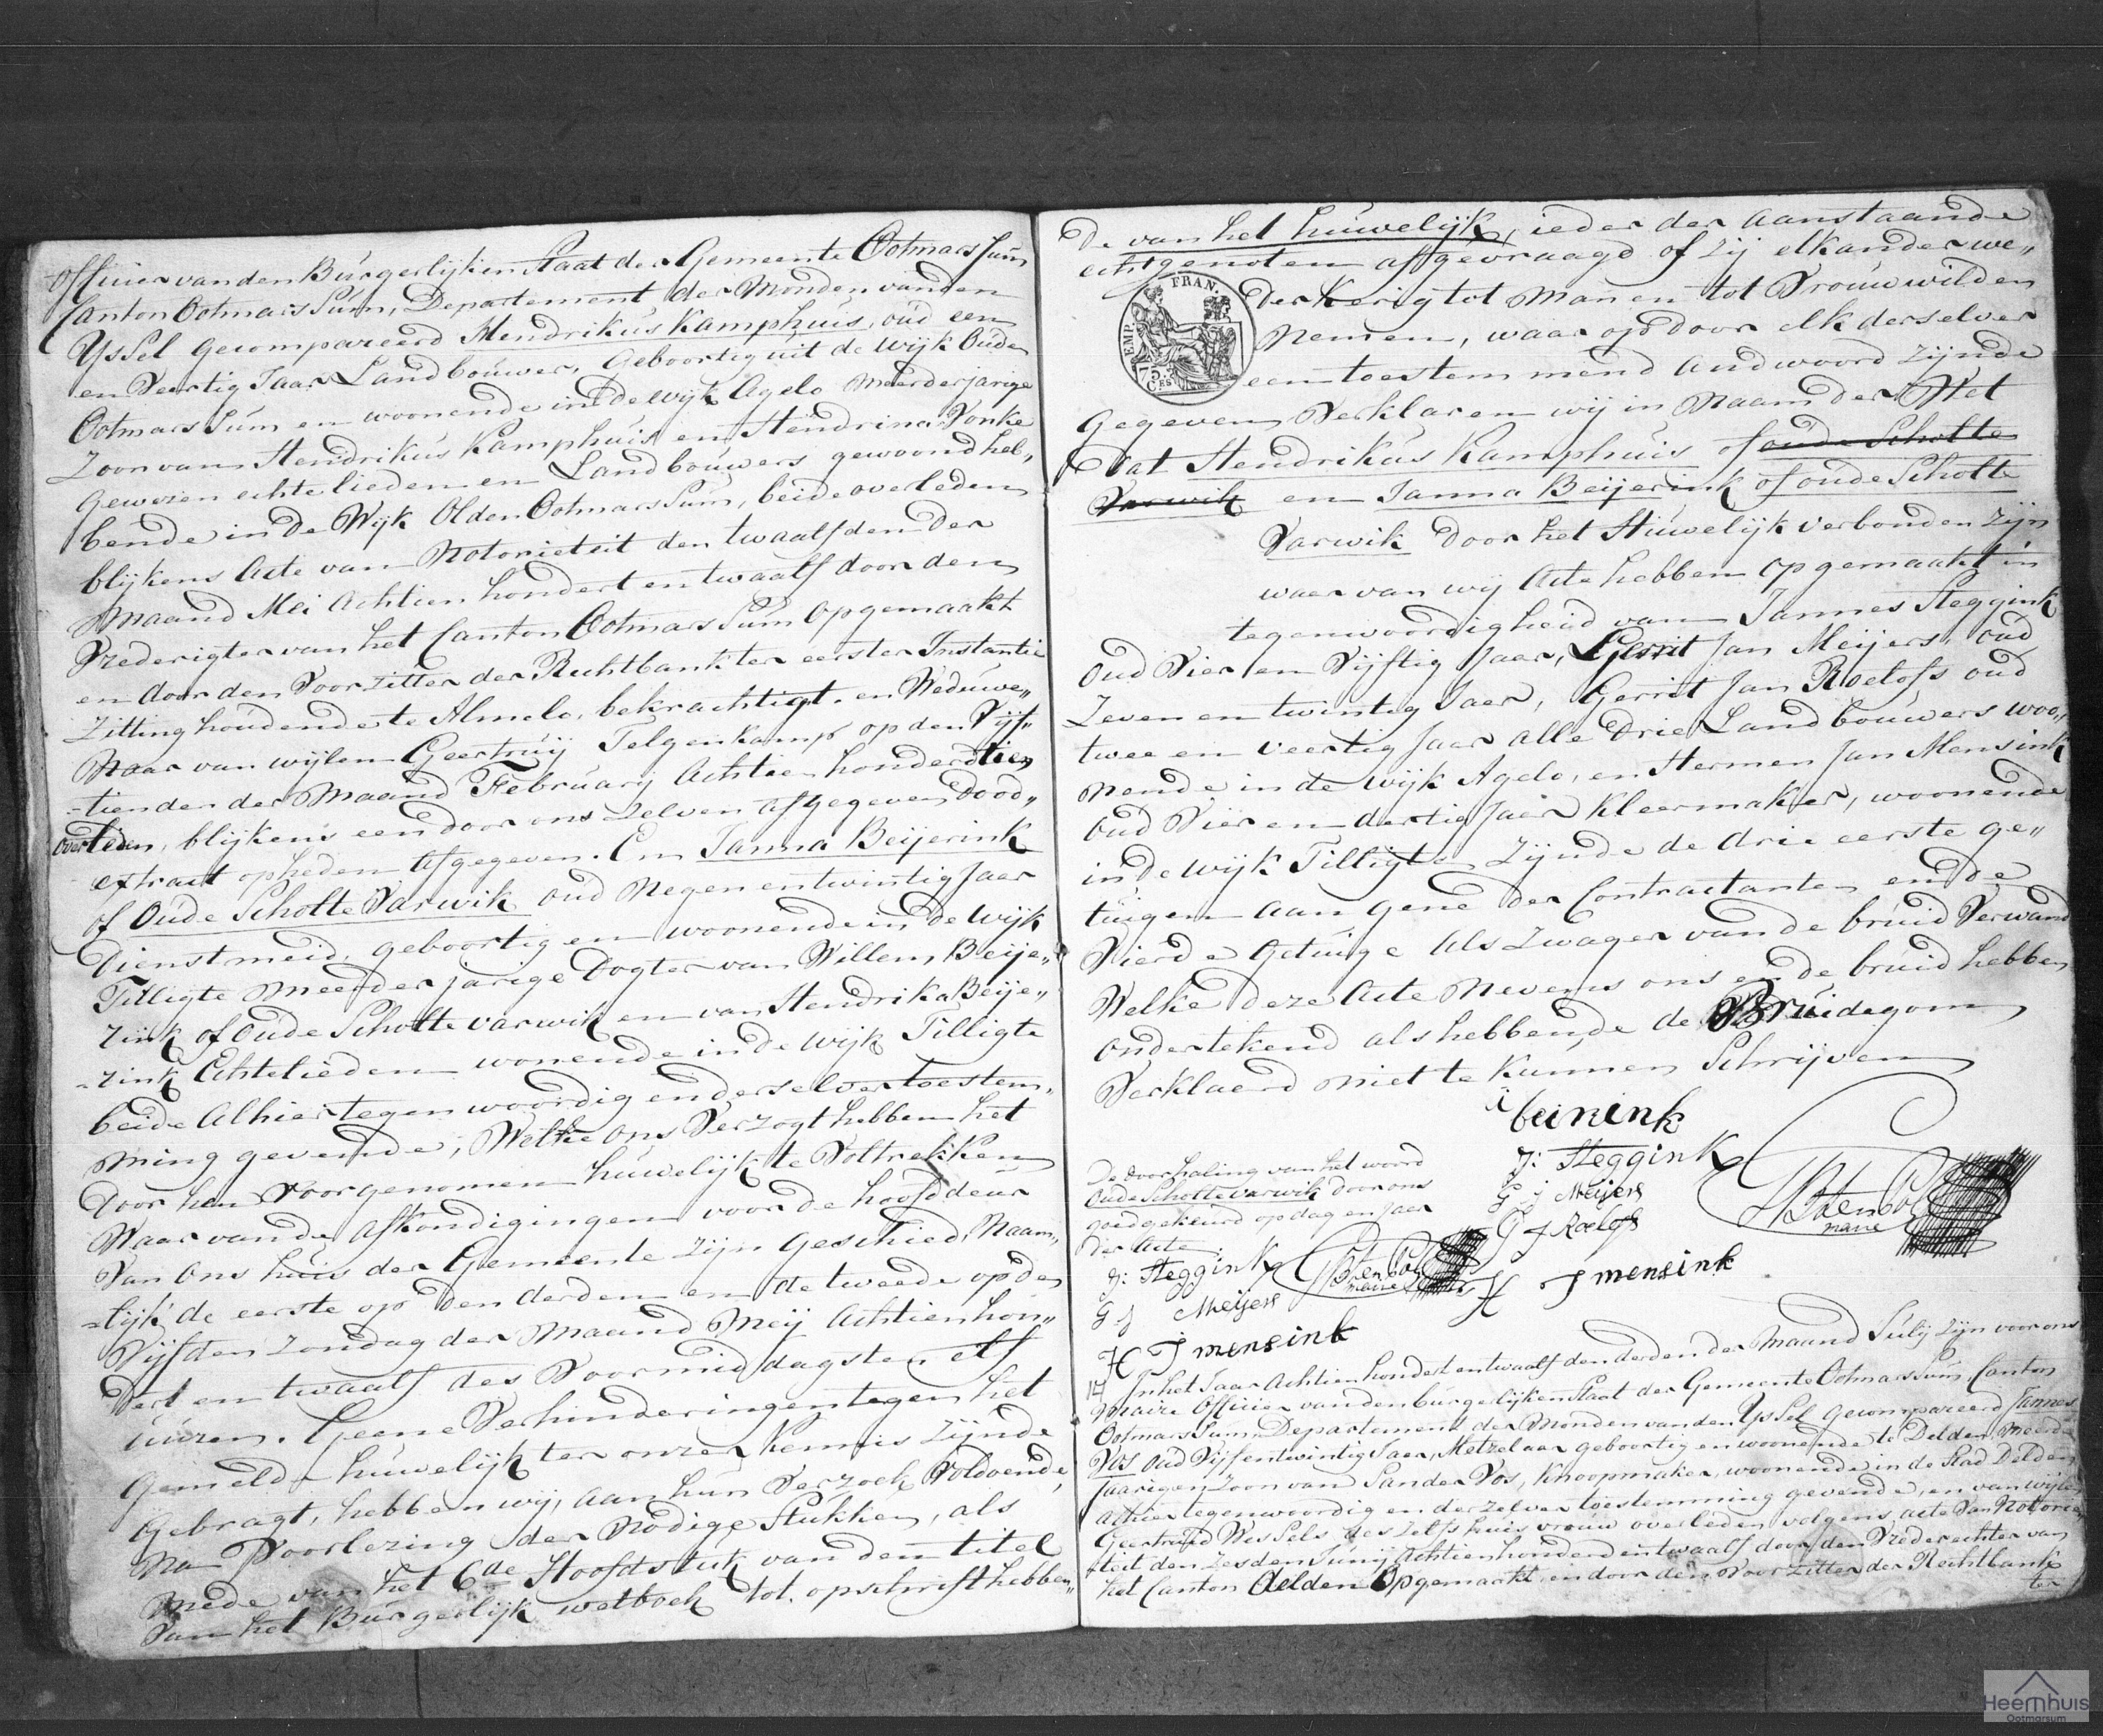 officier van den Burgerlijken Staat der Gemeente OotmarsSum
Canton OotmarsSum, Departement der Monden van den
YsSel gecompareerd Hendrikus Kamphuis, oud een
en Veertig Jaar Landbouwer, Geboortig uit de Wijk Oude
OotmarsSum en woonende in de wijk Agelo meerderjarige
Zoon van Hendrikus Kamphuis en Hendrina Vonke
gewezen echtelieden en Landbouwers gewoond heb„
bende in de Wijk Olden OotmarsSum, beide overleden
blijkens Acte van Notorieteit den twaalfden der
Maand Mei Achtien hondert en twaalf door den
Vrederigter van het Canton OotmarsSum opgemaakt
en door den Voorzitter der Rechtbank ter eerster Instantie
Zitting houdende te Almelo, bekrachtigt. en Weduwe„
Naar van wijlen Geertruij Telgenkamp op den Vijf„
-tienden der Maand Februarij Achtien honderdtien
overleden, blijkens een door ons zelven afgegeven dood„
extract op heden afgegeven. En Janna Beijerink
of Oude Scholte Varwik oud Negen en twintig Jaer
Dienstmeid, geboortig en woonende in de Wijk
Tilligte meerderjarige Dogter van Willem Beije„
rink of Oude Scholte varwik en van Hendrika Beije„
-rink Echtelieden wonende in de Wijk Tilligte
beide Alhier tegenwoordig en derselver toestem„
ming gevende, Welke Ons Verzogt hebben het
door hen Voorgenomen huwelijk te Voltrekken
Waar van de Afkondigingen voor de hoofddeur
Van Ons huis der Gemeente zijn geschied, Naam„
-lijk de eerste op den derden en de tweede op den
Vijfden Zondag der Maand Meij Achtien hon„
dert en twaalf des Voormiddags ten elf
uuren. Geene Verhinderingen tegen het
gemelde huwelijk ter onzer kennis zijnde
Gebragt, hebben wij, aan hun Verzoek Voldoende,
Na Voorlezing der Nodige Stukken, als
mede van het 6de Hoofdstuk van den titel
Van het Burgerlijk wetboek tot opschrift hebben„
de van het huwelijk, ieder der aanstaande
echtgenoten afgevraagd of zij elkander we„
FRAN.
EMP.
75.
CES
derkerig tot Man en tot Vrouw wilden
nemen, waar op door elk derselver
een toestemmend andwoord zijnde
gegeven Verklaren wij in Naam der Wet
Dat Hendrikus Kamphuis of oude Scholte
Varwik en Janna Beijerink of oude Scholte
Varwik door het Huwelijk verbonden zijn
waer van wij Acte hebben opgemaakt in
tegenwoordigheid van Jannes Steggink
oud Vier en Vijftig Jaar, Gerrit Jan Meijers, oud
Zeven en twintig Jaer, Gerrit Jan Roelofs oud
twee en veertig Jaar alle drie Landbouwers woo„
nende in de Wijk Agelo, en Hermen Jan Mensink
oud Vier en dertig Jaer Kleermaker, woonende
in de Wijk Tilligte zijnde de drie eerste ge„
tuigen aan gene der Contractanten en de
Vierde Getuige als Zwager van de bruid Verwand
Welke deze Acte nevens ons en de bruid hebben
ondertekend als hebbende de Bruidegom
Verklaerd niet te kunnen Schrijven
J: Steggink
G J Meijers
G J Roelofs
maire
H J mensink
De doorhaling van het woord
Oude Scholte varwik door ons
goedgekeurd op dag en Jaer
der Acte
J: Steggink
maire
G J Meijers
H J mensink
In het Jaar Achtien hondert en twaalf den derden der Maand Julij zijn voor ons
Maire Officier van den burgerlijken Staat der Gemeente OotmarsSum, Canton
OotmarsSum, Departement der Monden van den YsSel gecompareerd Jannes
Vos oud Vijfentwintig Jaer, Metzelaar geboortig en woonende te Delden, Meerder
Jaarigen Zoon van Sander Vos, Knoopmaker, woonende in de Stad Delden
Alhier tegenwoordig en derzelver toestemming gevende, en van wijlen
Geertruid WesSels des zelfs huisvrouw overleden volgens acte Van Notorie
teit den zesden Junij Achtien honderd en twaalf door den Vrederechter van
het Canton Delden Opgemaakt en door den Voorzitter der Rechtbank
ter
Heemhuis
Ootmarsum